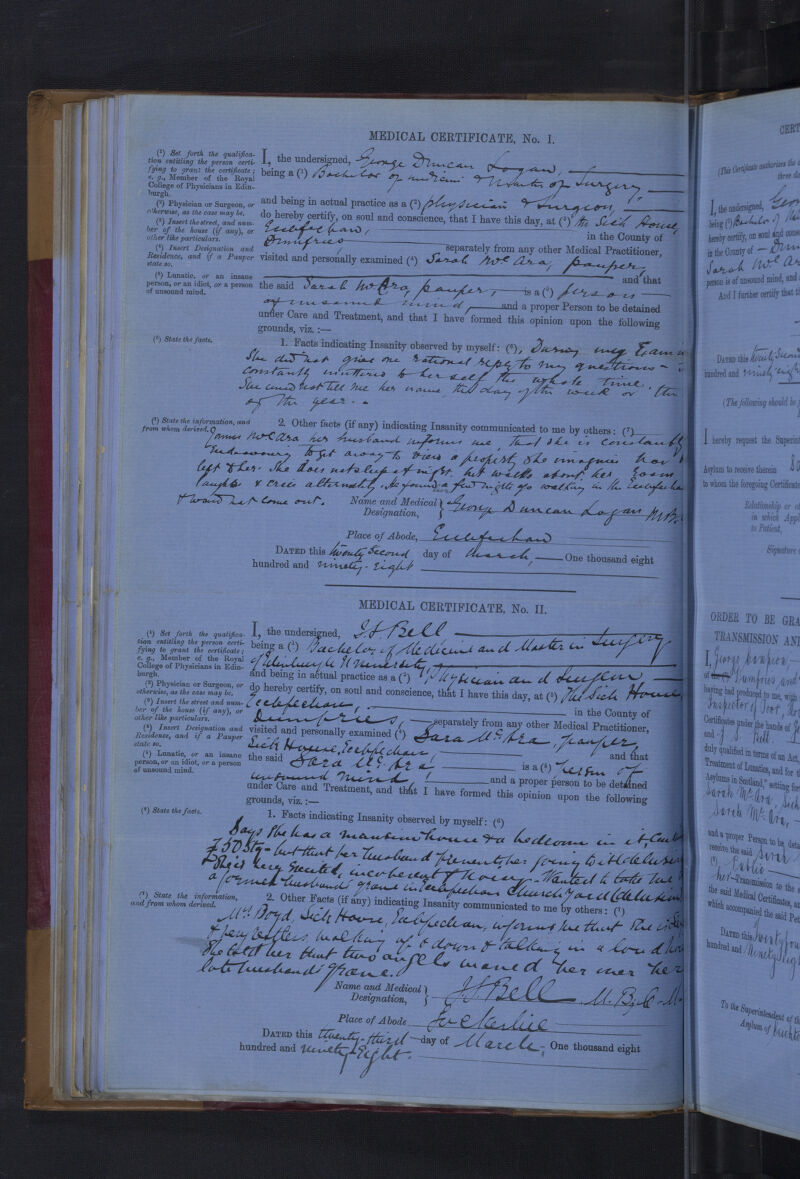 MEDICAL CERTIFICATE, No. I.
(¹) Set forth the qualifica-
tion entitling the person certi-
fying to grant the certificate;
e. g., Member of the Royal
College of Physicians in Edin-
burgh.
(²) Physician or Surgeon, or
otherwise, as the case may be.
(³) Insert the street, and num-
ber of the house (if any), or
other like particulars.
(⁴) Insert Designation and
Residence, and if a Pauper
state so.
(⁵) Lunatic, or an insane
person, or an idiot, or a person
of unsound mind.
I, the undersigned, George Duncan Logan,
being a (¹) Bachelor of medicine & Master of Surgery
and being in actual practice as a (²) physician & surgeon,
do hereby certify, on soul and conscience, that I have this day, at (³) the Sick House,
Ecclefechan, in the County of
Dumfries separately from any other Medical Practitioner,
visited and personally examined (⁴) Sarah McAra, pauper,
and that
the said Sarah McAra, pauper, is a (⁵) person
of unsound mind, and a proper Person to be detained
under Care and Treatment, and that I have formed this opinion upon the following
grounds, viz. :—
(⁶) State the facts.
1. Facts indicating Insanity observed by myself: (⁶), During my Exam
She did not give one rational reply to my questions -
constantly muttered to her self the whole time.
She could not tell me her name the day of the week or the
of the year. -
(⁷) State the information, and
from whom derived.
2. Other facts (if any) indicating Insanity communicated to me by others: (⁷)
James McAra her husband informs me, that she is constantly
Endeavouring to get away to view a property she imagines has
left to her. She does not sleep at night, but walks about her room
laughs & cries alternately. He found a few nights ago walking in the Ecclefecha
& would not come out.
Name and Medical
Designation, George Duncan Logan M.B.
Place of Abode, Ecclefechan
DATED this twenty second day of March, One thousand eight
hundred and ninety-eight
MEDICAL CERTIFICATE, No. II.
(¹) Set forth the qualifica-
tion entitling the person certi-
fying to grant the certificate;
e. g., Member of the Royal
College of Physicians in Edin-
burgh.
(²) Physician or Surgeon, or
otherwise, as the case may be.
(³) Insert the street and num-
ber of the house (if any), or
other like particulars.
(⁴) Insert Designation and
Residence, and if a Pauper
state so.
(⁵) Lunatic, or an insane
person, or an idiot, or a person
of unsound mind.
I, the undersigned, J.S. Bell
being a (¹) Bachelor of Medicine and Master in Surgery
of Edinburgh University,
and being in actual practice as a (²) Physician and Surgeon
do hereby certify, on soul and conscience, that I have this day, at (³) The Sick House
Ecclefechan, in the County of
Dumfries, separately from any other Medical Practitioner,
visited and personally examined (⁴) Sara McAra, pauper,
Sick House, Ecclefechan, and that
the said Sara McAra is a (⁵) Person of
unsound mind, and a proper person to be detained
under Care and Treatment, and that I have formed this opinion upon the following
grounds, viz. :—
(⁶) State the facts.
1. Facts indicating Insanity observed by myself: (⁶)
Says she has a mansion house & a bedroom in it
£50 Stg - but that her husband prevents her going to it (delusion
& She is very excited, incoherent & noisy. Wanted to take me
a former husband's grave in Ecclefechan Churchyard (delusion
(⁷) State the information,
and from whom derived.
2. Other Facts (if any) indicating Insanity communicated to me by others: (⁷)
Mrs Boyd, Sick House, Ecclefechan, informs me that she is
& very restless walking up & down & talking in a loud
She told her that two angels warned her over her
late husband's grave.
Name and Medical
Designation, J.S. Bell M.B., C.M.
Place of Abode Lockerbie
DATED this twenty-third day of March, One thousand eight
hundred and ninety Eight.
CERT
I, the undersigned, Geor
being (¹) Bachelor of
hereby certify, on soul and cons
in the County of
Sarah McAr
person is of unsound mind, and
And I further certify that
DATED this twenty second
hundred and ninety eigh
(The following should be
I hereby request the Superin
Asylum to receive therein
to whom the foregoing Certificate
Relationship or
in which App
to Patient,
Signature
ORDER TO BE GRA
TRANSMISSION AN
I, George
of Dumfries and
having had produced to me, with
Inspector of Poor,
Certificates under the hands of
and J. S. Bell
duly qualified in terms of an Act,
Treatment of Lunatics, and for
Asylums in Scotland," setting for
Sarah McAra, Sick
Sarah McAra,
and a proper Person to be deta
receive the said Sarah
her Transmission to the
the said Medical Certificates, a
which accompanied the said Pet
DATED this twenty fou
hundred and Ninety eigh
To the Superintendent of the
Asylum of